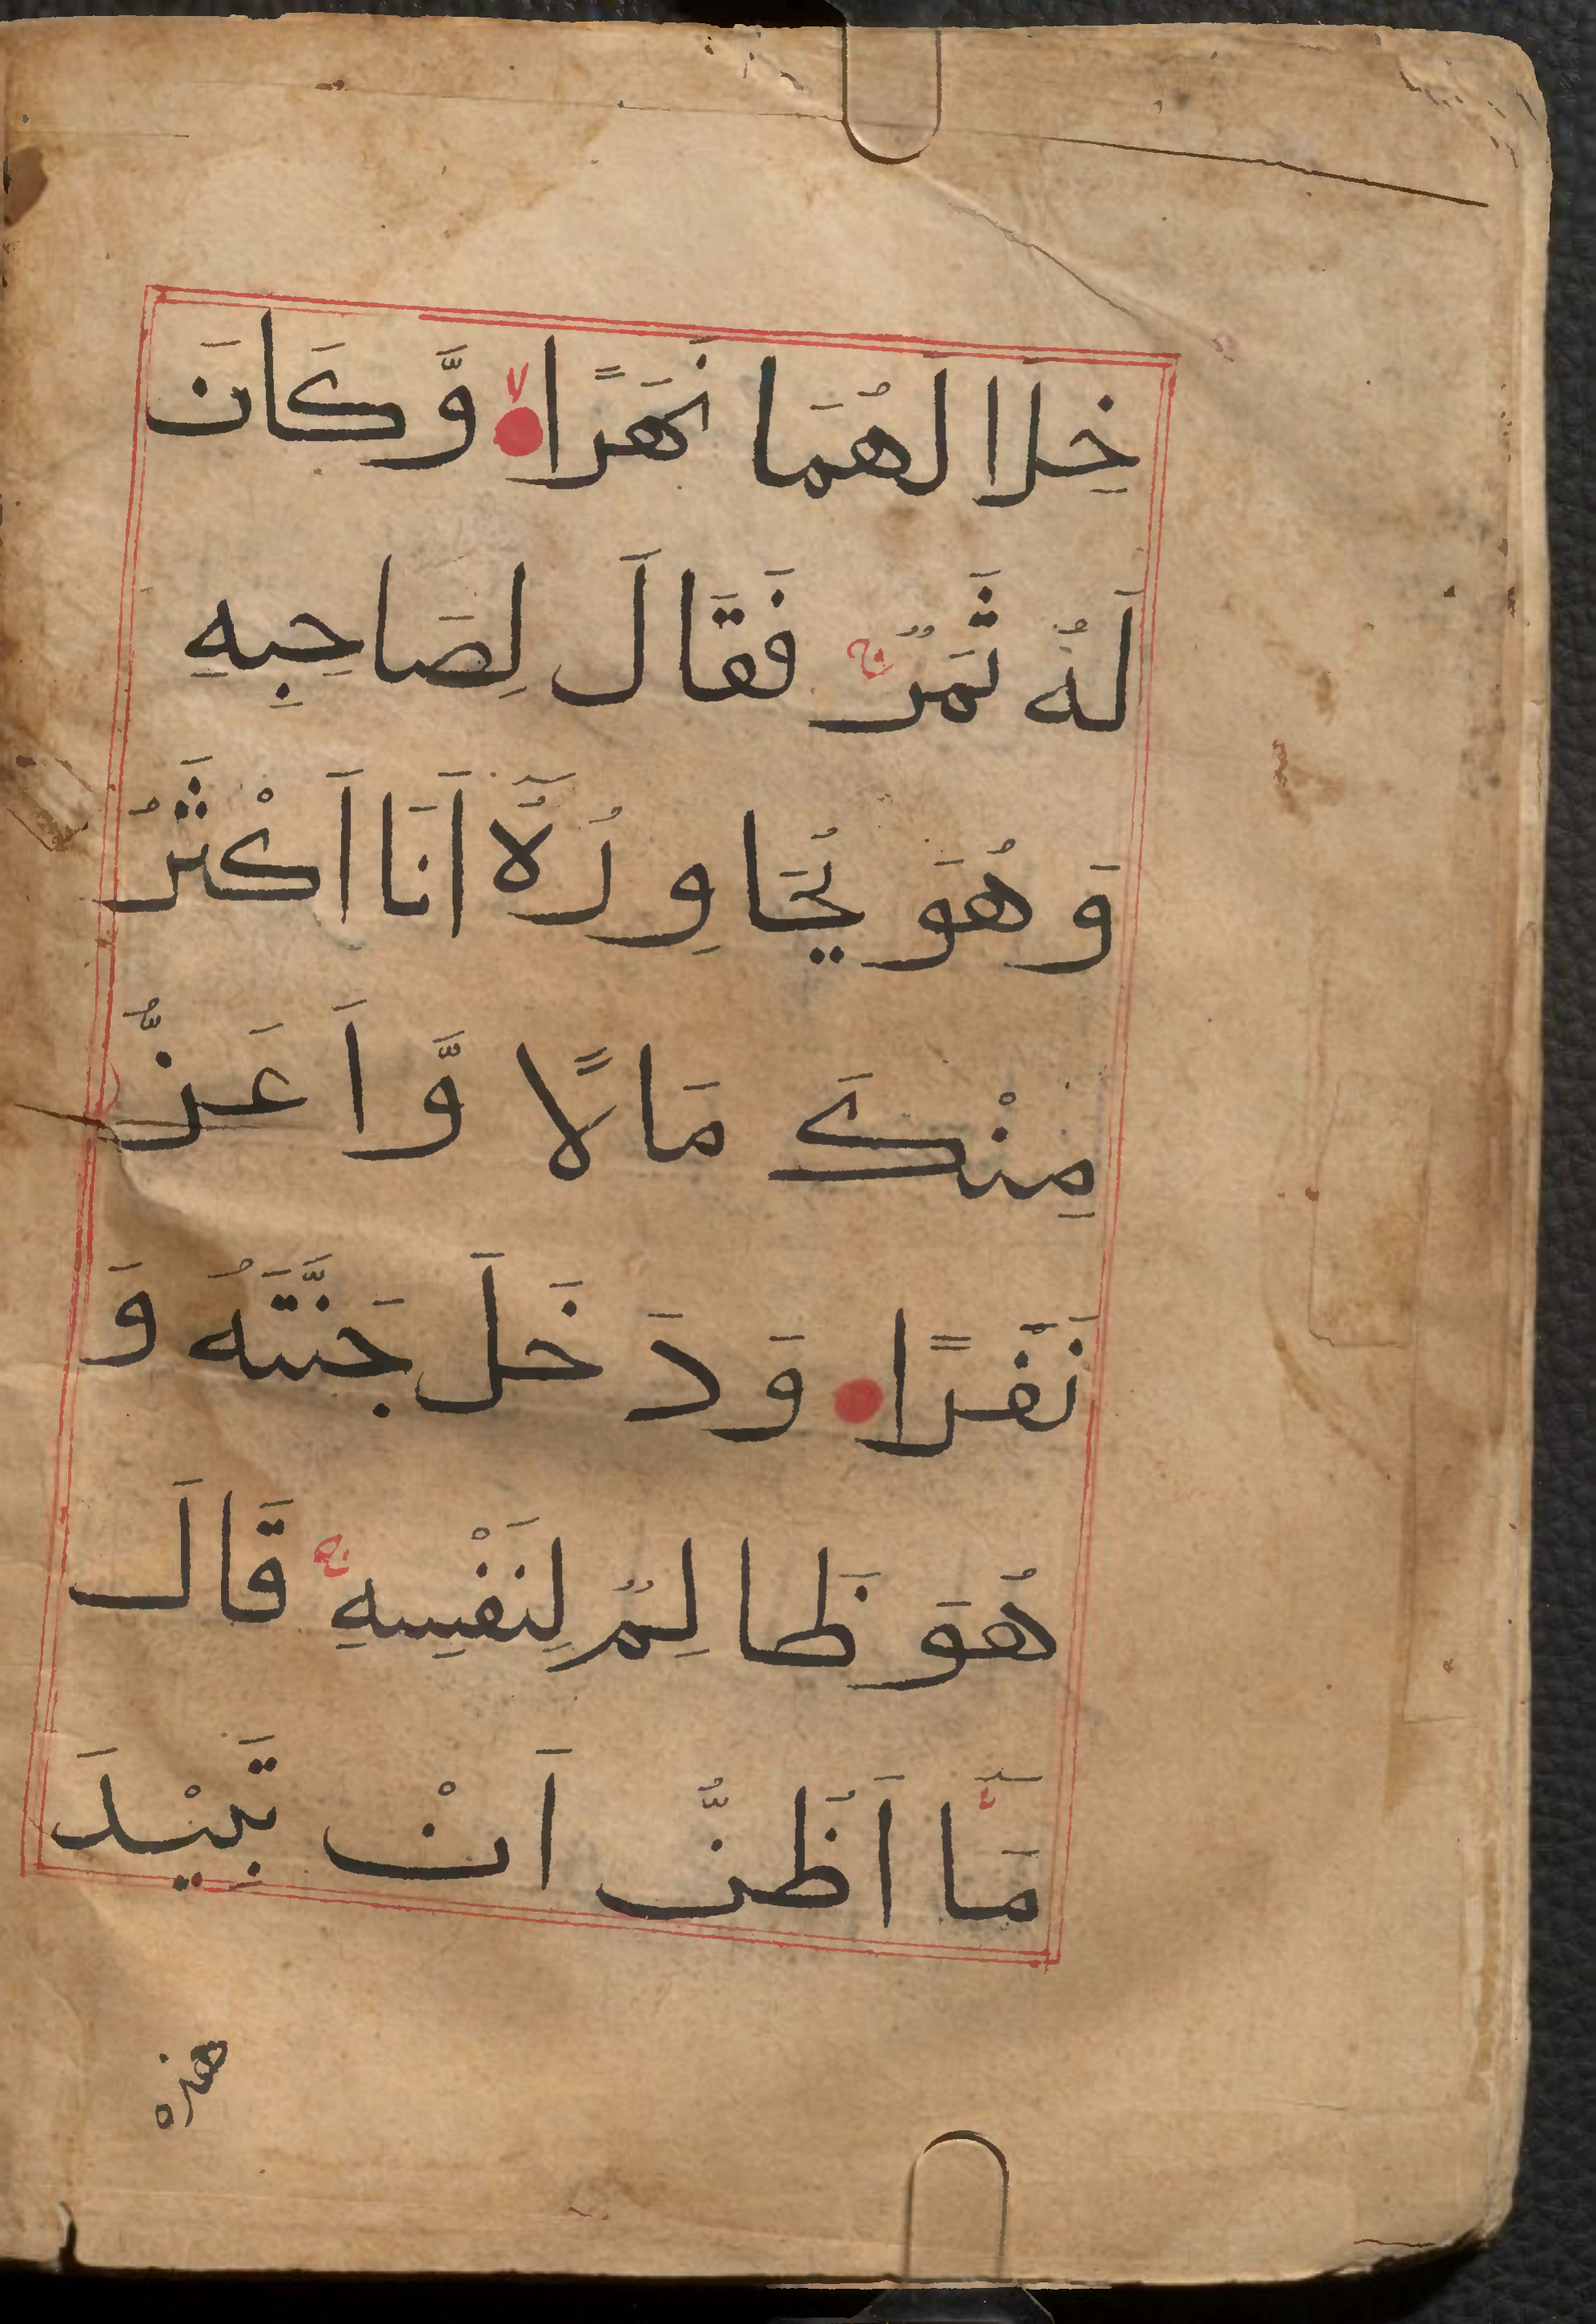 خِلَا لَهُمَا نَهَرًا لا وَّكَانَ
لَهُ ثَمَرٌ ج فَقَالَ لِصَاحِبِهِ
وَهُوَ يُحَاوِرُهٗٓ اَنَا اَكْثَرُ
مِنْكَ مَالًا وَّاَعَزُّ
نَفَرًا وَدَخَلَ جَنَّتَهُ وَ
هُوَ ظَالِمٌ لِنَفْسِهِ ج قَالَ
مَآ اَظُنُّ اَنْ تَبِيْدَ
هذه